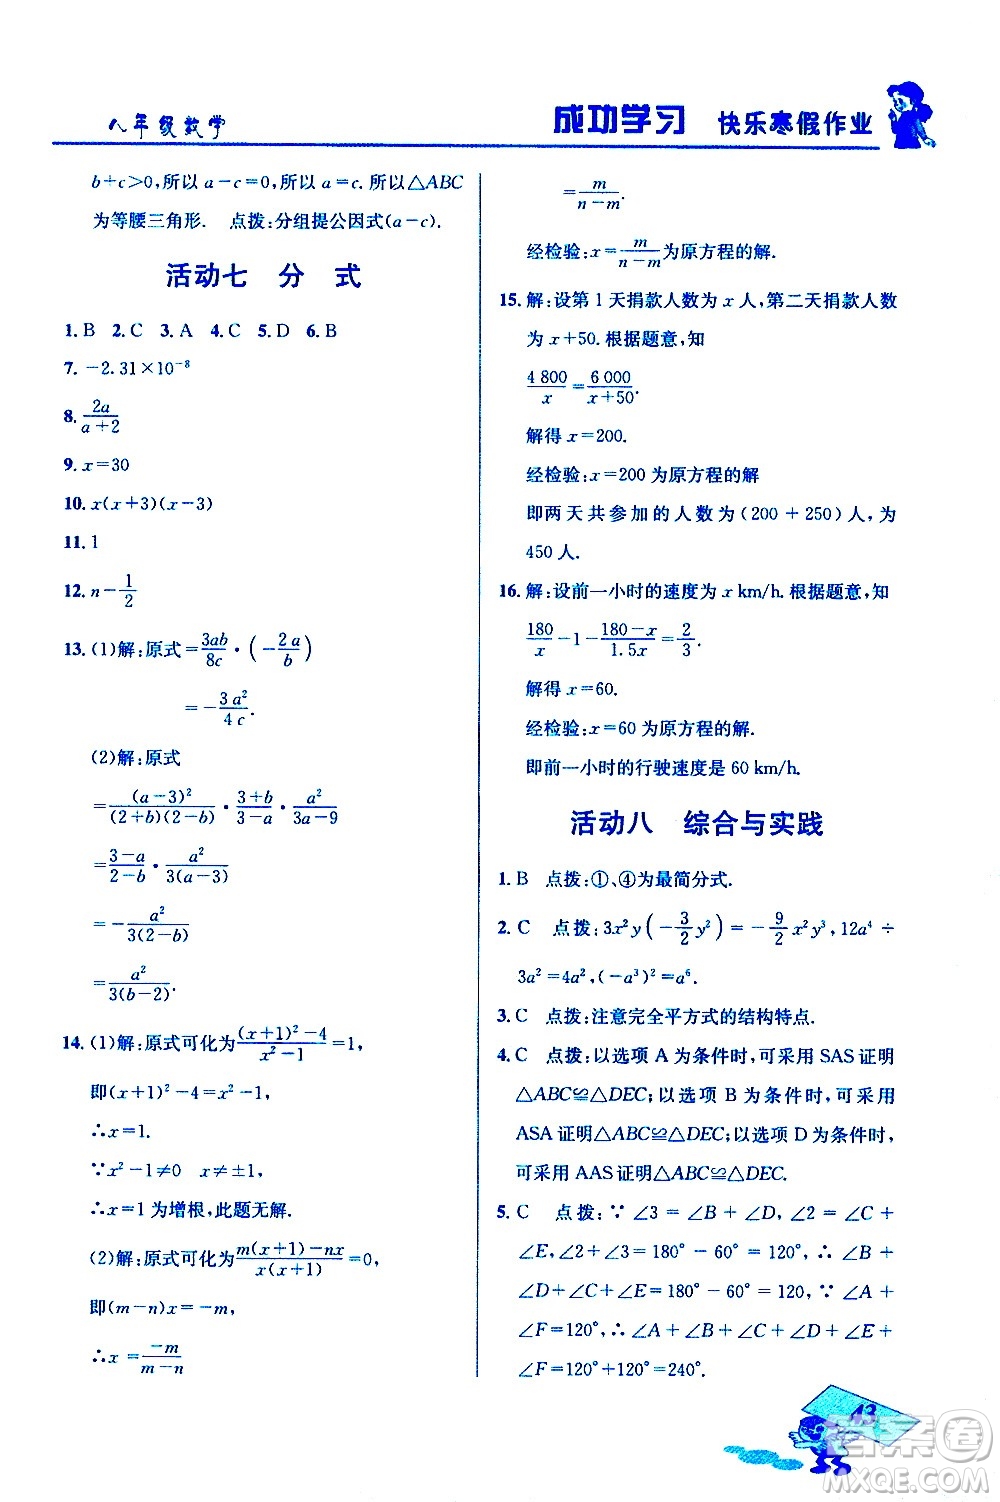 八年级数学
成功学习 快乐寒假作业
b+c>0,所以 a-c=0,所以 a=c.所以△ABC
为等腰三角形. 点拨:分组提公因式(a-c).
活动七 分 式
1. B 2. C 3. A 4. C 5. D 6. B
7. -2.31×10⁻⁸
8. 2a/(a+2)
9. x=30
10. x(x+3)(x-3)
11. 1
12. n-1/2
13. (1)解:原式=3ab/8c·(-2a/b)
=-3a²/4c.
(2)解:原式
=(a-3)²/((2+b)(2-b))·(3+b)/(3-a)·a²/(3a-9)
=(3-a)/(2-b)·a²/(3(a-3))
=-a²/(3(2-b))
=a²/(3(b-2)).
14. (1)解:原式可化为((x+1)²-4)/(x²-1)=1,
即(x+1)²-4=x²-1,
∴x=1.
∵x²-1≠0 x≠±1
∴x=1 为增根,此题无解.
(2)解:原式可化为(m(x+1)-nx)/(x(x+1))=0,
即(m-n)x=-m,
∴x=-m/(m-n)
=m/(n-m).
经检验:x=m/(n-m)为原方程的解.
15. 解:设第 1 天捐款人数为 x 人,第二天捐款人数
为 x+50.根据题意,知
4 800/x=6 000/(x+50).
解得 x=200.
经检验:x=200 为原方程的解
即两天共参加的人数为(200+250)人,为
450 人.
16. 解:设前一小时的速度为 x km/h.根据题意,知
180/x-1-(180-x)/1.5x=2/3.
解得 x=60.
经检验:x=60 为原方程的解.
即前一小时的行驶速度是 60 km/h.
活动八 综合与实践
1. B 点拨:①、④为最简分式.
2. C 点拨:3x²y(-3/2y²)=-9/2x²y³,12a⁴÷
3a²=4a²,(-a³)²=a⁶.
3. C 点拨:注意完全平方式的结构特点.
4. C 点拨:以选项 A 为条件时,可采用 SAS 证明
△ABC≌△DEC;以选项 B 为条件时,可采用
ASA 证明△ABC≌△DEC;以选项 D 为条件时,
可采用 AAS 证明△ABC≌△DEC.
5. C 点拨:∵∠3=∠B+∠D,∠2=∠C+
∠E,∠2+∠3=180°-60°=120,∴∠B+
∠D+∠C+∠E=180°-60°=120,∵∠A+
∠F=120°,∴∠A+∠B+∠C+∠D+∠E+
∠F=120°+120°=240°.
43
答案圈
MXQE.COM